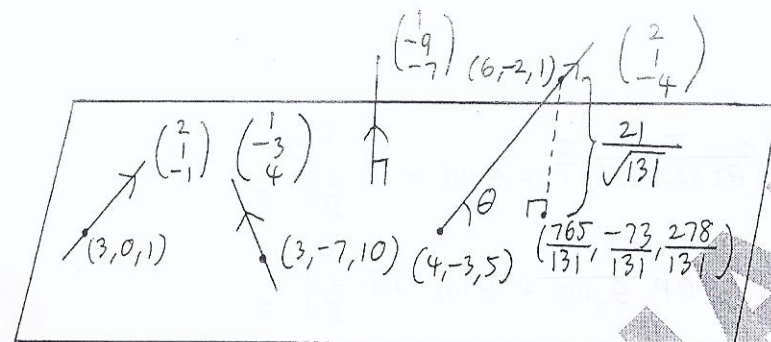 (1 -9 -7)
(6,-2,1)
(2 1 -4)
(2 1 -1)
(1 -3 4)
21/√131
θ
(3,0,1)
(3,-7,10)
(4,-3,5)
(765/131, -73/131, 278/131)